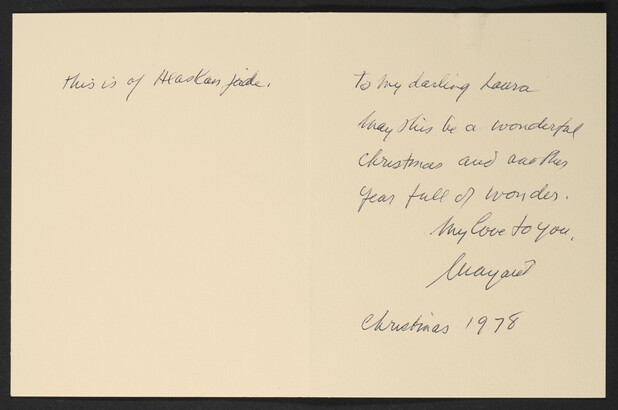 this is of Alaskan jade.
To my darling Laura
May this be a wonderful
Christmas and another
year full of wonder.
My love to you,
Margaret
Christmas 1978